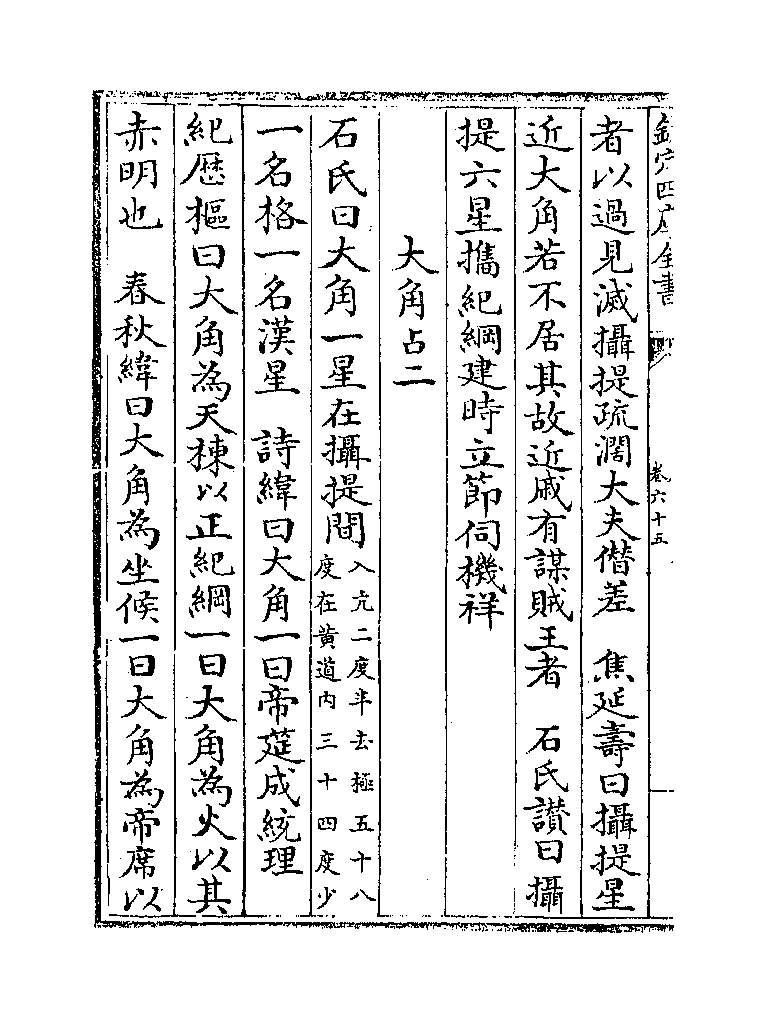 欽定四庫全書
卷六十五
者以過見滅攝提疏濶大夫僭差　焦延壽曰攝提星
近大角若不居其故近戚有謀賊王者　石氏讃曰攝
提六星攜紀綱建時立節伺機祥
大角占二
石氏曰大角一星在攝提間入亢二度半去極五十八度在黄道内三十四度少
一名格一名漢星　詩緯曰大角一曰帝筵成統理
紀歴樞曰大角為天棟以正紀綱一曰大角為火以其
赤明也　春秋緯曰大角為坐候一曰大角為帝席以